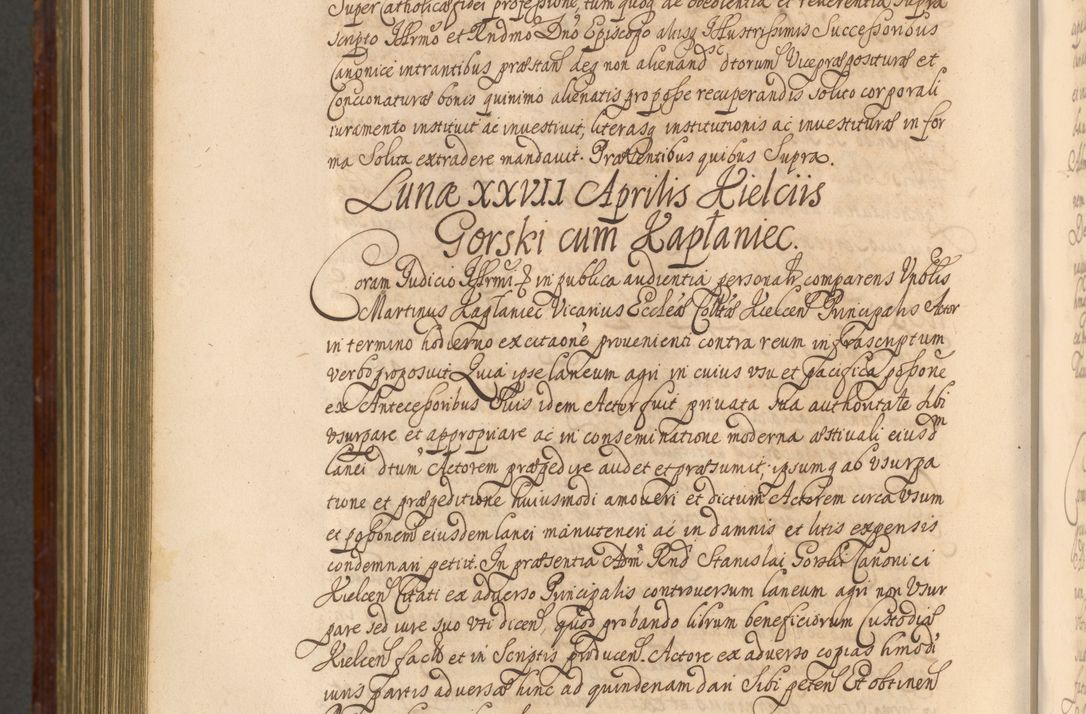 Super Catholicæ fidei professione, tum quoq de obedientia et reverentia supra
scripto Illrmo et Rndmo Dno Episcopo aliisq Illustrissimis Successoribus
Canonice intrantibus præstan deq non alienand dtorum Vicepræpositur et
Concionaturæ bonis quinimo alienatis pro posse recuperandis solito corporali
iuramento instituit ac investivit, literasq institutionis ac investituræ in for
ma solita extradere mandavit. Præsentibus quibus supra.
Lunæ XXVII Aprilis Kielciis
Gorski cum Kapłaniec.
Coram Judicio Illrmi in publica audientia personalr comparens Vnblis
Martinus Kapłaniec Vicarius Ecclæ Colltæ Kielcen Principalis Actor
in termino hodierno ex citaone provenienti contra reum infrascriptum
verbo proposuit. Quia ipse laneum agri in cuius vsu et pacifica possone
ex Antecessoribus suis idem Actor fuit privata sua authoritate sibi
vsurpare et appropriare ac in conseminatione moderna æstivali eiusdm
lanei dtum Actorem præpedire audet et præsumit; ipsumq ab vsurpa
tione et præpeditione huiusmodi amoveri et dictum Actorem circa vsum
et possonem eiusdem lanei manuteneri ac in damnis et litis expensis
condemnari petiit. In præsentia Adm Rnd Stanislai Gorski Canonici
Kielcen Citati ex adverso Principalis controversum laneum agri non vsur
pare sed iure suo vti dicen, quod probando librum beneficiorum Custodiæ
Kielcen facto et in scriptis producen. Actore ex adverso copias hmodi
iuris partis adversæ hinc ad quindenam dari sibi peten Et obtinen